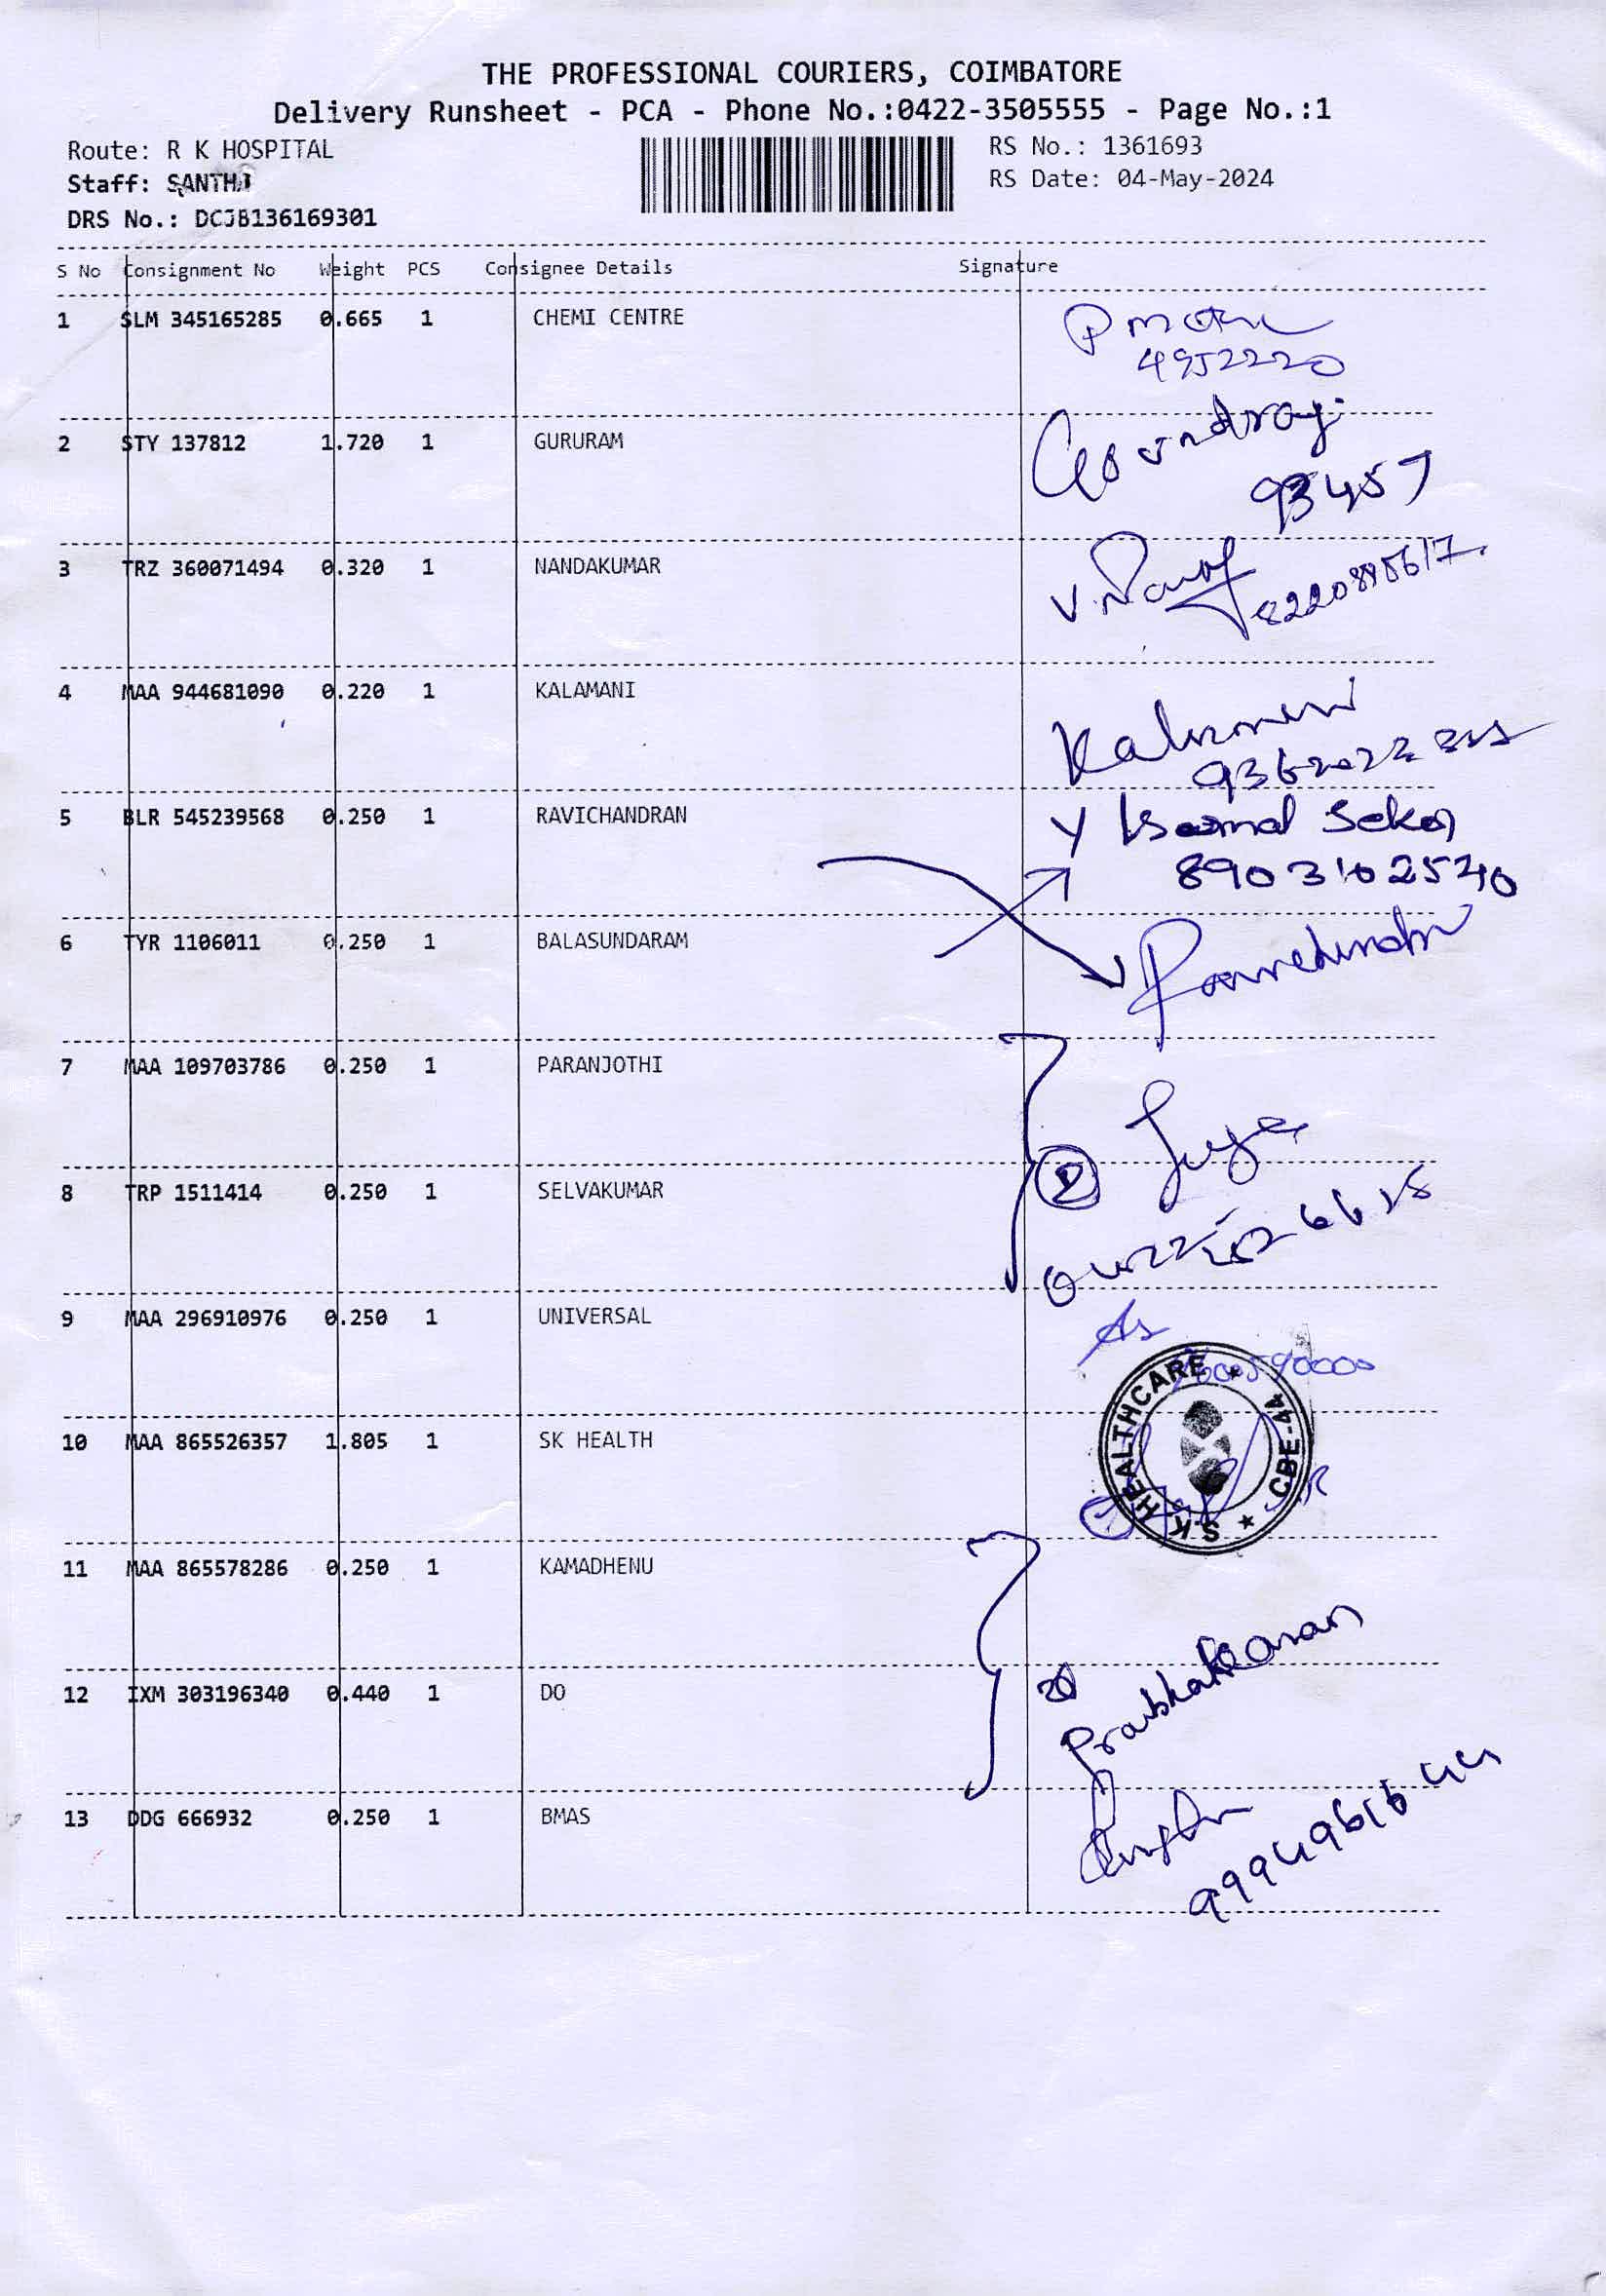 THE PROFESSIONAL COURIERS, COIMBATORE
Delivery Runsheet - PCA - Phone No.:0422-3505555 - Page No.:1
Route: R K HOSPITAL
RS No.: 1361693
Staff: SANTHI
RS Date: 04-May-2024
DRS No.: DCJB136169301
S No Consignment No Weight PCS Consignee Details Signature
1 SLM 345165285 0.665 1 CHEMI CENTRE
4952220
2 STY 137812 1.720 1 GURURAM
93457
3 TRZ 360071494 0.320 1 NANDAKUMAR
4 MAA 944681090 0.220 1 KALAMANI
5 BLR 545239568 0.250 1 RAVICHANDRAN
8903102540
6 TYR 1106011 0.250 1 BALASUNDARAM
7 MAA 109703786 0.250 1 PARANJOTHI
8 TRP 1511414 0.250 1 SELVAKUMAR
9 MAA 296910976 0.250 1 UNIVERSAL
S.K HEALTHCARE ★ CBE-44 ★
10 MAA 865526357 1.805 1 SK HEALTH
11 MAA 865578286 0.250 1 KAMADHENU
12 IXM 303196340 0.440 1 DO
Prabhakaran
13 DDG 666932 0.250 1 BMAS
9994961644